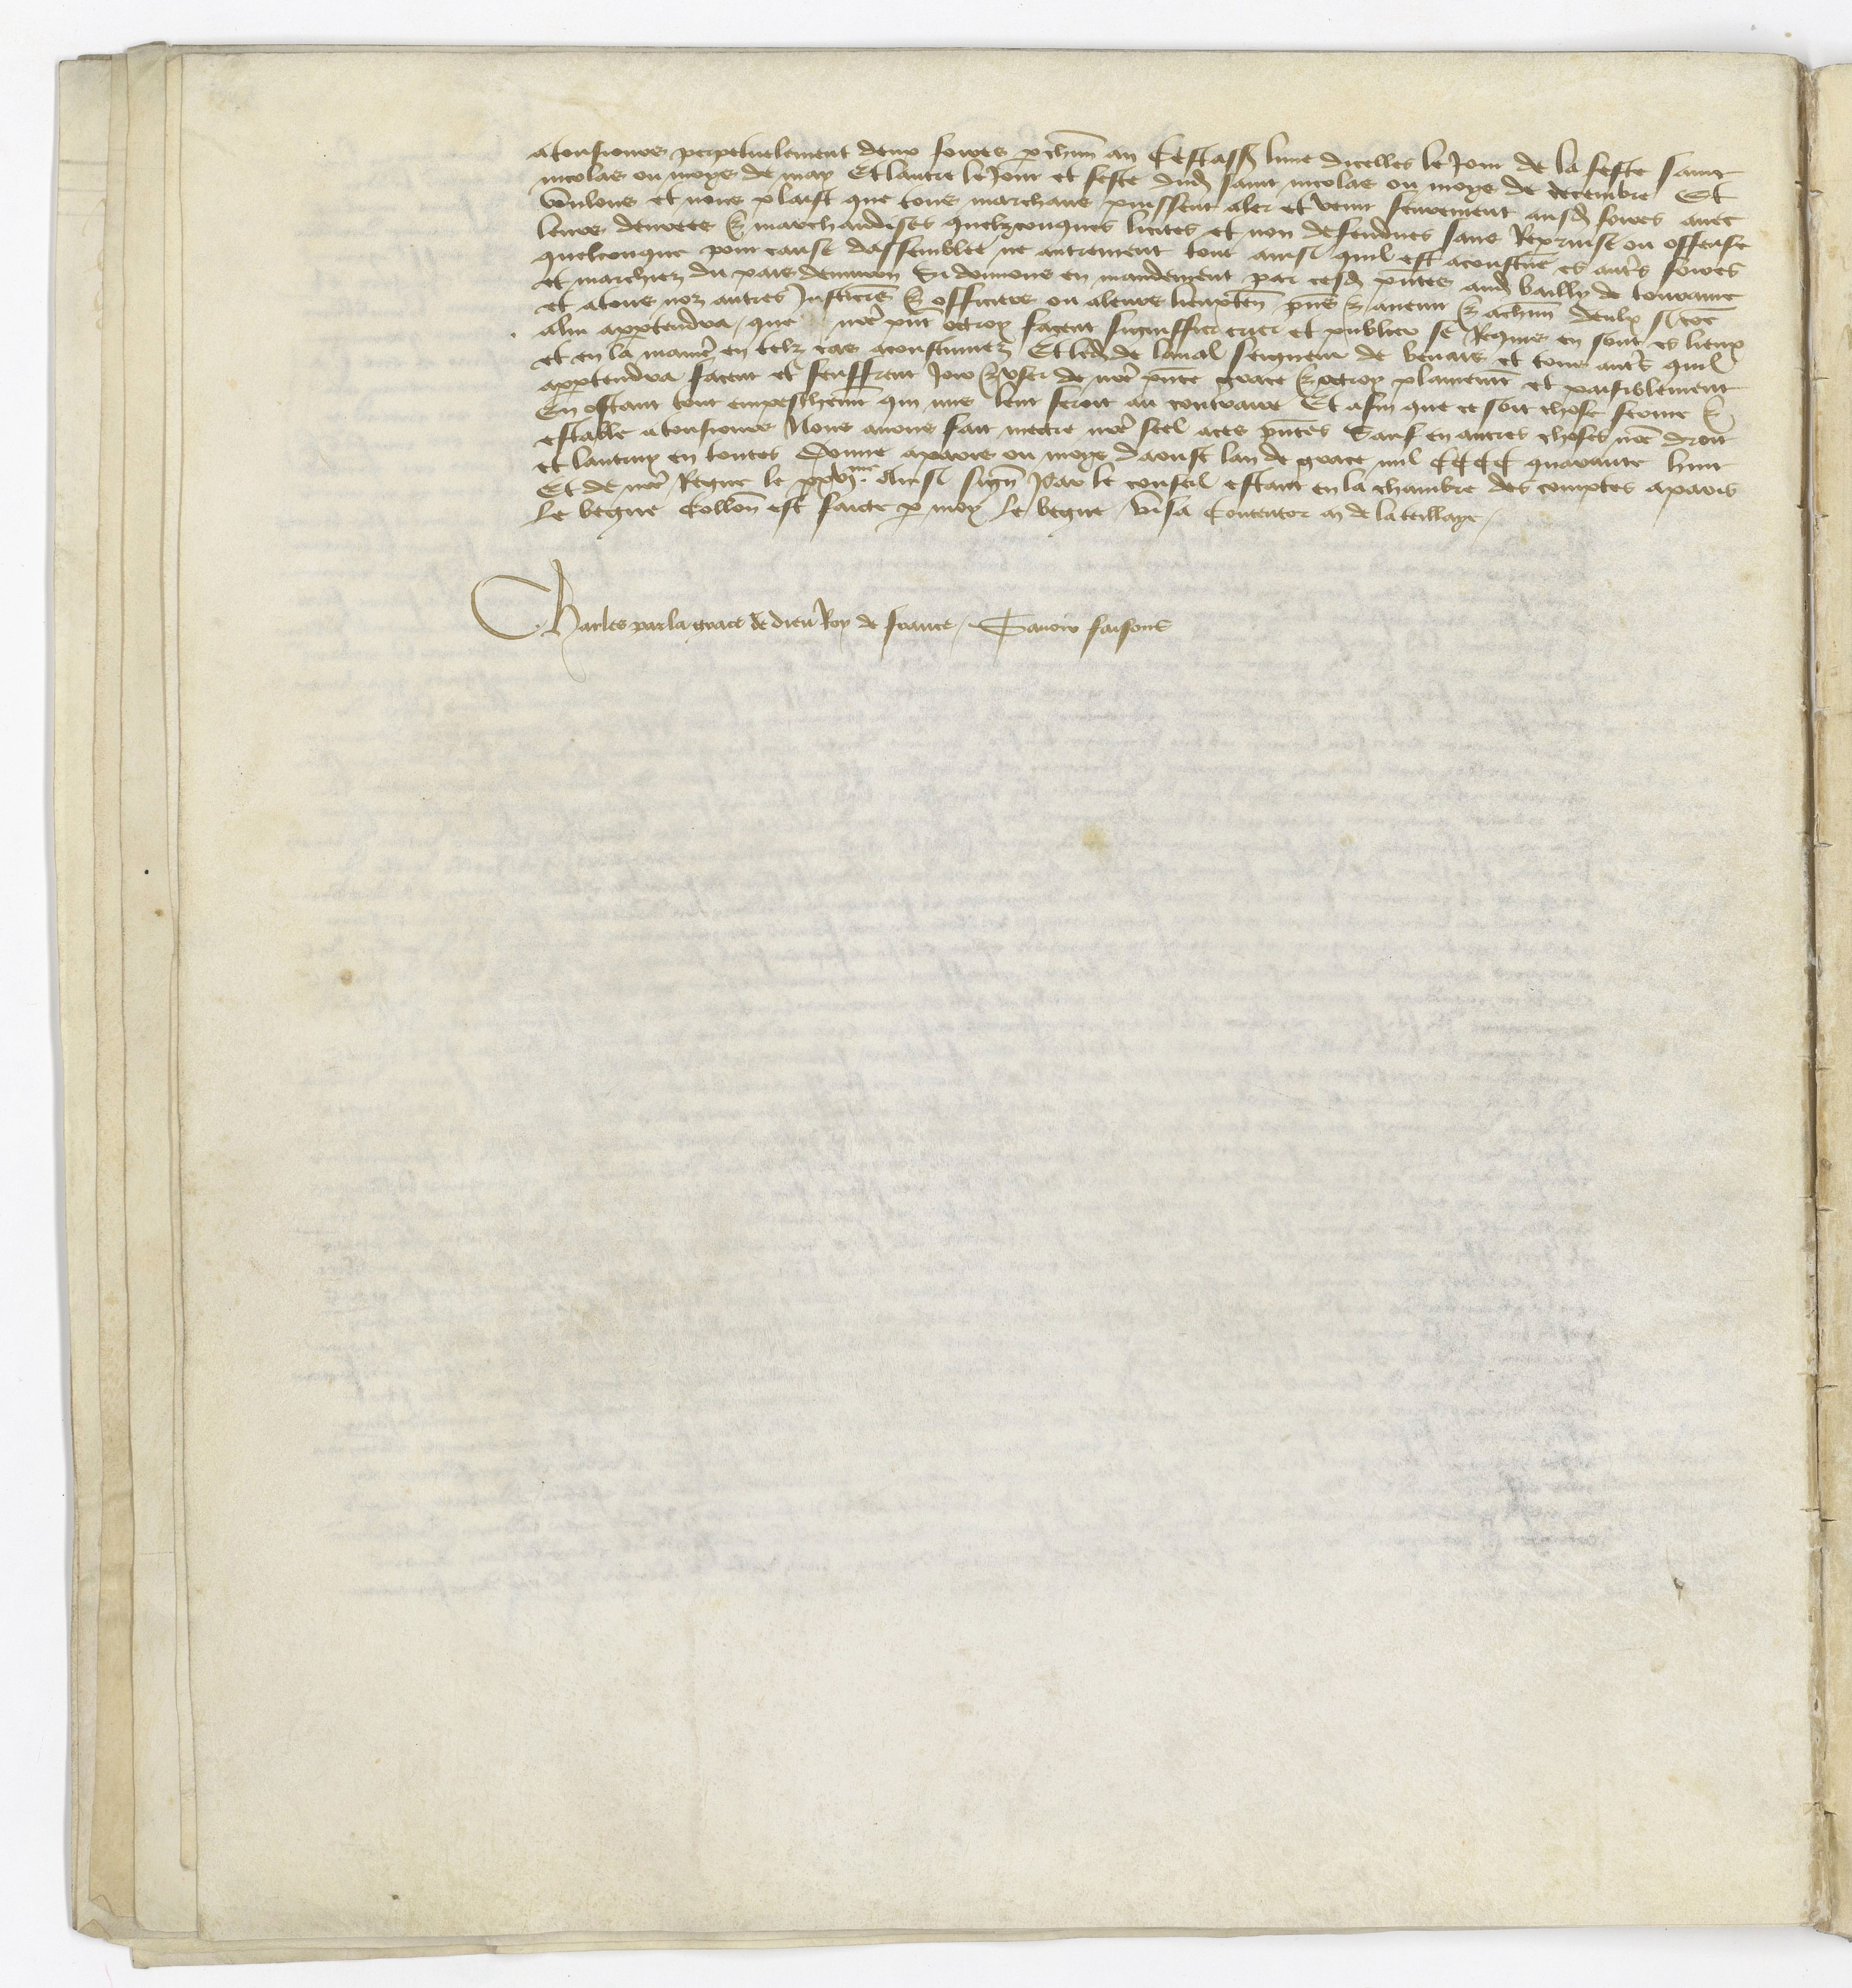 atousiours perpetuelment deux foires p chun an Cestass lune dicelles le Jour de la feste saint
nicolas ou moys de may Et lautre le Jour et feste dud saint nicolas ou moys de decembre Et
voulons et nous plaist que tous marchans puissent aler et venir seurement ausd foires avec
leurs denrees & marchandises quelzconques licites et non defendues sans Reprinse ou offense
quelconque pour cause dassemblee ne autrement tout ainsi quil est acoustue es autrs foires
et marchiez du pais denuiron Si donnons en mandement par cesd pntes aud bailly de touraine
et atous noz autres Justiciers & officiers ou aleurs lieuxten pns & auenir & achun deulx si coe
alui apptendra que nre pnt octroy facent signiffier crier et publier se Requis en sont es lieux
et en la manie en telz cas acoustumez Et led de laual seigneur de benais et tous autrs quil
apptendra facent et seuffrent Joir & user de nre pnte grace & octroy plainemt et paisiblement
En ostant tout empeschemt qui mis leur seroit au contraire Et afin que ce soit chose ferme &
estable atousiours Nous auons fait mectre nre seel aces pntes Sauf en autres choses nre droit
et lautruy en toutes Donne aparis ou moys daoust lan de grace mil CCCC quarante huit
Et de nre Regne le xxvjme Ainsi sign Par le conseil estant en la chambre des comptes aparis
le begue Collon est faicte p moy le begue Visa Contentor de la teillaye

Charles par la grace de dieu Roy de france Sauoir faisons